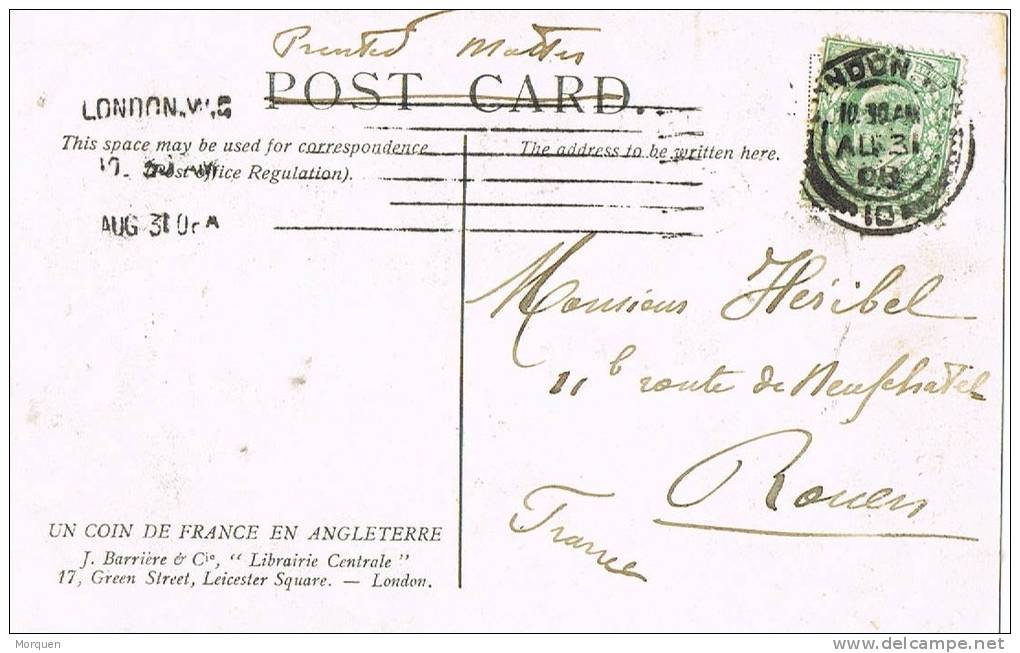 Printed Matter
POST CARD.
LONDON.W.
This space may be used for correspondence
(Post Office Regulation).
AUG 31 0
The address to be written here.
LONDON.W
10.30 AM
AU 31
08
10
Monsieur Héribel
11 b route de Neufchatel
Rouen
France
UN COIN DE FRANCE EN ANGLETERRE
J. Barrière & Cie, " Librairie Centrale "
17, Green Street, Leicester Square. — London.
Morquen
http://www.delcampe.net